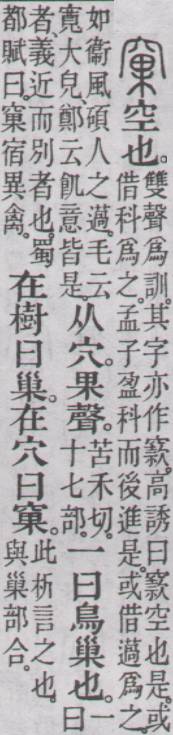 窠空也。雙聲爲訓。其字亦作窾。高誘曰窾空也是。或
借科爲之。孟子盈科而後進是。或借薖爲之。
如衞風碩人之薖。毛云
寬大皃、鄭云飢意皆是。从穴。果聲。苦禾切。
十七部。一曰鳥巢也。一
曰
者、義近而別者也。蜀
都賦曰。窠宿異禽。在樹曰巢。在穴曰窠。此析言之也。
與巢部合。